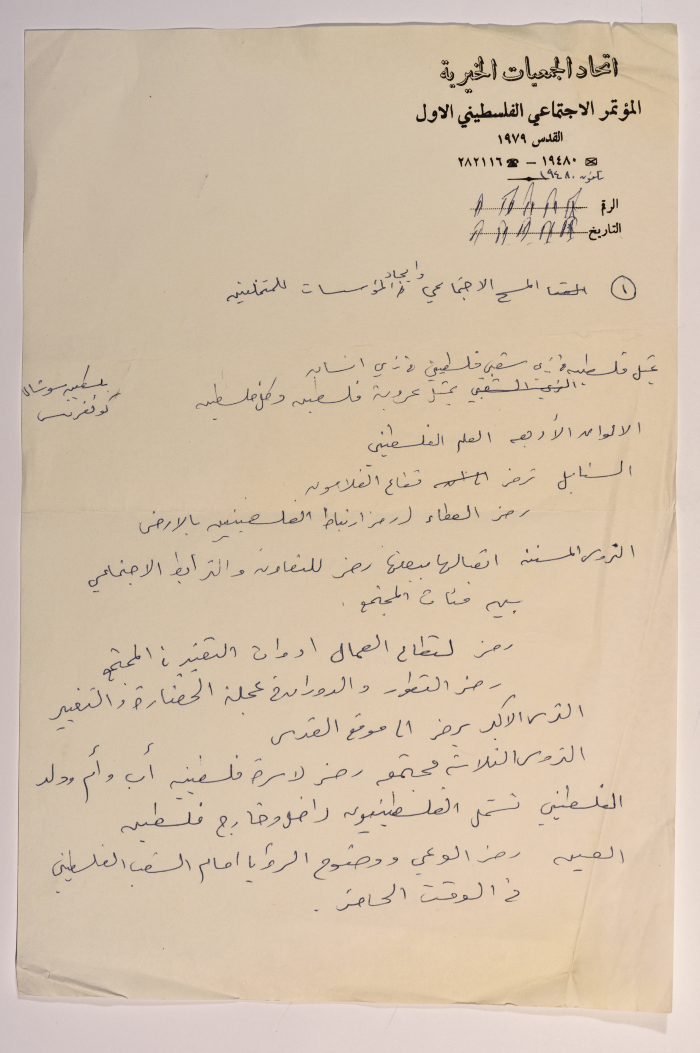 اتحاد الجمعيات الخيرية
المؤتمر الاجتماعي الفلسطيني الاول
القدس ١٩٧٩
١٩٤٨٠ – ٢٨٢١١٦
١٩٤٨٠
الرقم
التاريخ
١ المسح الاجتماعي وايجاد المؤسسات للمتخلفين
تمثل فلسطين في زي شعبي فلسطيني في زي انسان
الزي الشعبي يمثل عروبة فلسطين وكل فلسطين
فلسطين سوشال
كونفرنس
الالوان الأربعه العلم الفلسطيني
السنابل ترمز قطاع الفلاحون
رمز العطاء رمز ارتباط الفلسطينيين بالارض
التروس المسننه اتصالها ببعضها رمز للتعاون والترابط الاجتماعي
بين فئات المجتمع .
رمز لقطاع العمال ادوات التغيير في المجتمع
رمز التطور والدوران في عجلة الحضارة والتغيير
الترس الاكبر يرمز الى موقع القدس
التروس الثلاثة مجتمعه رمز لاسرة فلسطينيه أب وأم وولد
الفلسطيني تشمل الفلسطينيون داخل وخارج فلسطين
العين رمز الوعي ووضوح الرؤيا امام الشعب الفلسطيني
في الوقت الحاضر .